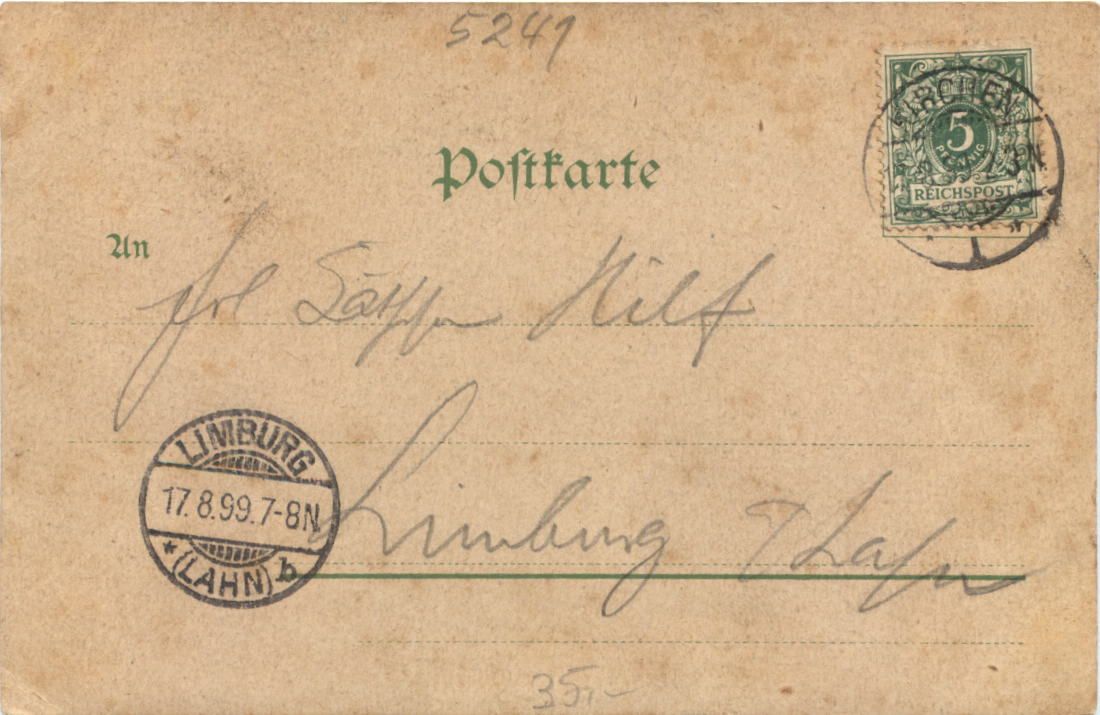 5241
Postkarte
5
PFENNIG
REICHSPOST
KIRCHEN
An
Frl Hilf
LIMBURG
17.8.99.7-8N
(LAHN) b
Limburg Lahn
35,-